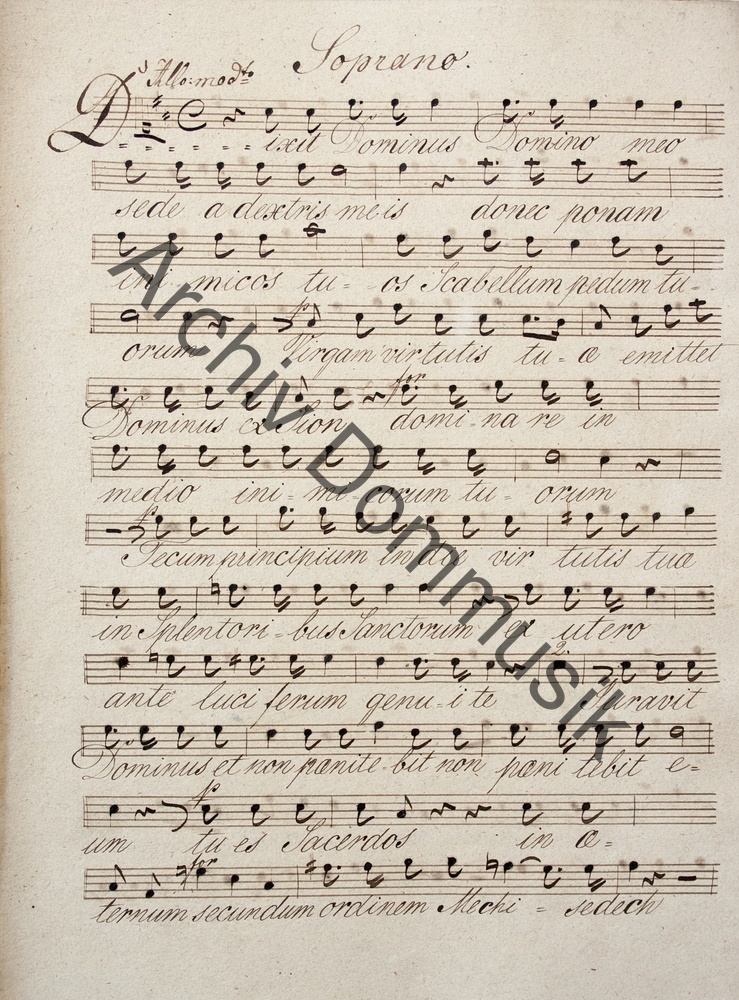 Soprano.
Allo: modto
Dixit Dominus Domino meo
sede a dextris meis donec ponam
ini micos tu = os Scabellum pedum tu -
orum Virgam virtutis tu = æ emittet
for
Dominus ex Sion domi - na re in
medio ini = mi = corum tu = orum
p
Tecum principium in die vir tutis tuæ
in Splentori = bus Sanctorum ex utero
ante luci ferum genu = i te Juravit
Dominus et non pænite bit non pæni tebit e =
p
um tu es Sacerdos in æ =
for
ternum secundum ordinem Mechi = sedech
Archiv Dommusik